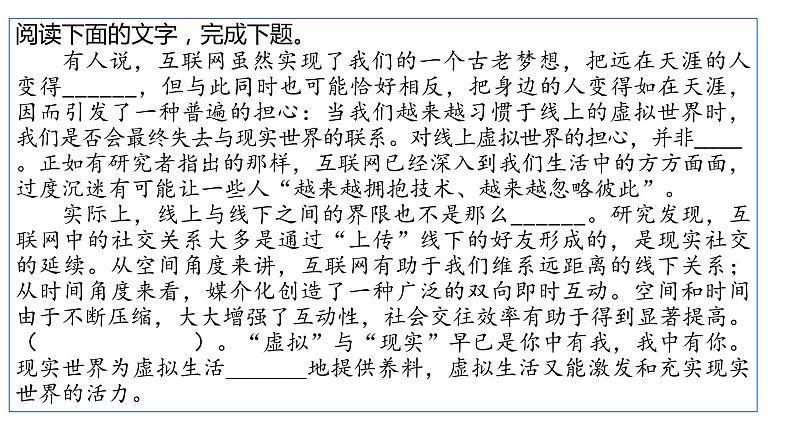 阅读下面的文字，完成下题。
有人说，互联网虽然实现了我们的一个古老梦想，把远在天涯的人
变得______，但与此同时也可能恰好相反，把身边的人变得如在天涯，
因而引发了一种普遍的担心：当我们越来越习惯于线上的虚拟世界时，
我们是否会最终失去与现实世界的联系。对线上虚拟世界的担心，并非____
。正如有研究者指出的那样，互联网已经深入到我们生活中的方方面面，
过度沉迷有可能让一些人“越来越拥抱技术、越来越忽略彼此”。
实际上，线上与线下之间的界限也不是那么______。研究发现，互
联网中的社交关系大多是通过“上传”线下的好友形成的，是现实社交
的延续。从空间角度来讲，互联网有助于我们维系远距离的线下关系；
从时间角度来看，媒介化创造了一种广泛的双向即时互动。空间和时间
由于不断压缩，大大增强了互动性，社会交往效率有助于得到显著提高。
（　　　　　　　）。“虚拟”与“现实”早已是你中有我，我中有你。
现实世界为虚拟生活_______地提供养料，虚拟生活又能激发和充实现实
世界的活力。